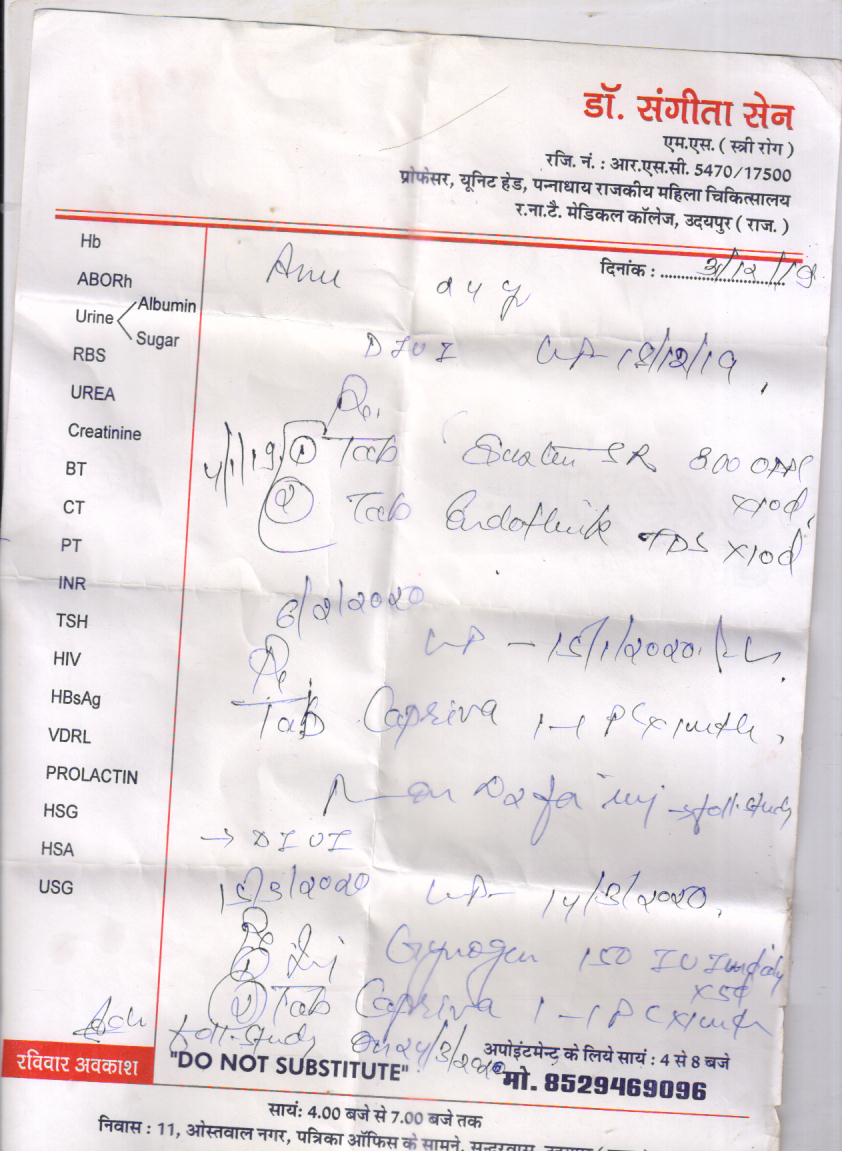 डॉ. संगीता सेन
एम.एस. ( स्त्री रोग )
रजि. नं. : आर.एस.सी. 5470/17500
प्रोफेसर, यूनिट हेड, पन्नाधाय राजकीय महिला चिकित्सालय
र.ना.टै. मेडिकल कॉलेज, उदयपुर ( राज. )
दिनांक : 3/12/19
Hb
ABORh
Urine Albumin
Sugar
RBS
UREA
Creatinine
BT
CT
PT
INR
TSH
HIV
HBsAg
VDRL
PROLACTIN
HSG
HSA
USG
Anu
DIUI
18/12/19
Rx.
4/1/19 ① Tab SR
x10d
② Tab Endothik TDS x10d
6/2/2020
15/1/2020
Rx.
Tab Capriva 1-1 PC x1mth
inj → foll. study
→ DIUI
15/3/2020 14/3/2020
Rx
① Inj Gynogen 150 IU
x5d
② Tab Capriva 1-1 PC x1mth
foll. study on 24/3/2020
अपोइंटमेन्ट के लिये सायं : 4 से 8 बजे
रविवार अवकाश
"DO NOT SUBSTITUTE"
मो. 8529469096
सायं: 4.00 बजे से 7.00 बजे तक
निवास : 11, ओस्तवाल नगर, पत्रिका ऑफिस के सामने, सुन्दरवास